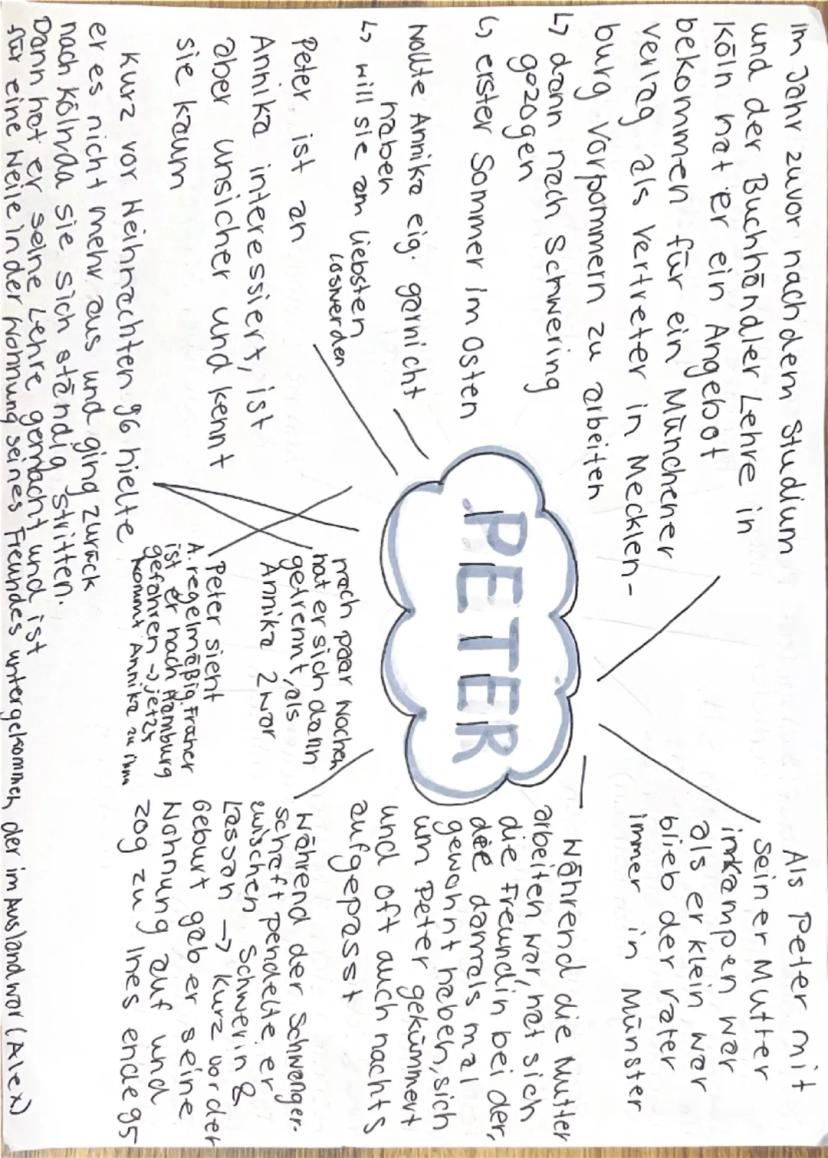 im Jahr zuvor nach dem Studium
und der Buchhändler Lehre in
Köln hat er ein Angebot
bekommen für ein Münchener
verlag als vertreter in Mecklen-
burg Vorpommern zu arbeiten
↳ dann nach Schwering
gezogen
↳ erster Sommer im Osten
Wollte Annika eig. garnicht
haben
↳ will sie am liebsten
loswerden
Peter ist an
Annika interessiert, ist
aber unsicher und kennt
sie kaum
kurz vor Weihnachten 96 hielte
er es nicht mehr aus und ging zurück
nach Kölnda sie sich ständig stritten.
Dann hat er seine Lehre gemacht und ist
für eine Weile in der Wohnung seines Freundes untergekommen, der im Ausland war (Alex)
PETER
nach paar Wochen
hat er sich dann
getrennt, als
Annika 2 war
Peter sieht
A. regelmäßig, Früher
ist er nach Hamburg
gefahren → jetzt
kommt Annika zu ihm
Als Peter mit
seiner Mutter
inkampen war
als er klein war
blieb der vater
immer in Münster
Während die Mutter
arbeiten war, hat sich
die Freundin bei der,
die damals mal
gewohnt haben, sich
um Peter gekümmert
und oft auch nachts
aufgepasst
Während der Schwanger-
schaft pendelte er
zwischen Schwerin &
Lassan → kurz vor der
Geburt gab er seine
Wohnung auf und
zog zu Ines ende 95